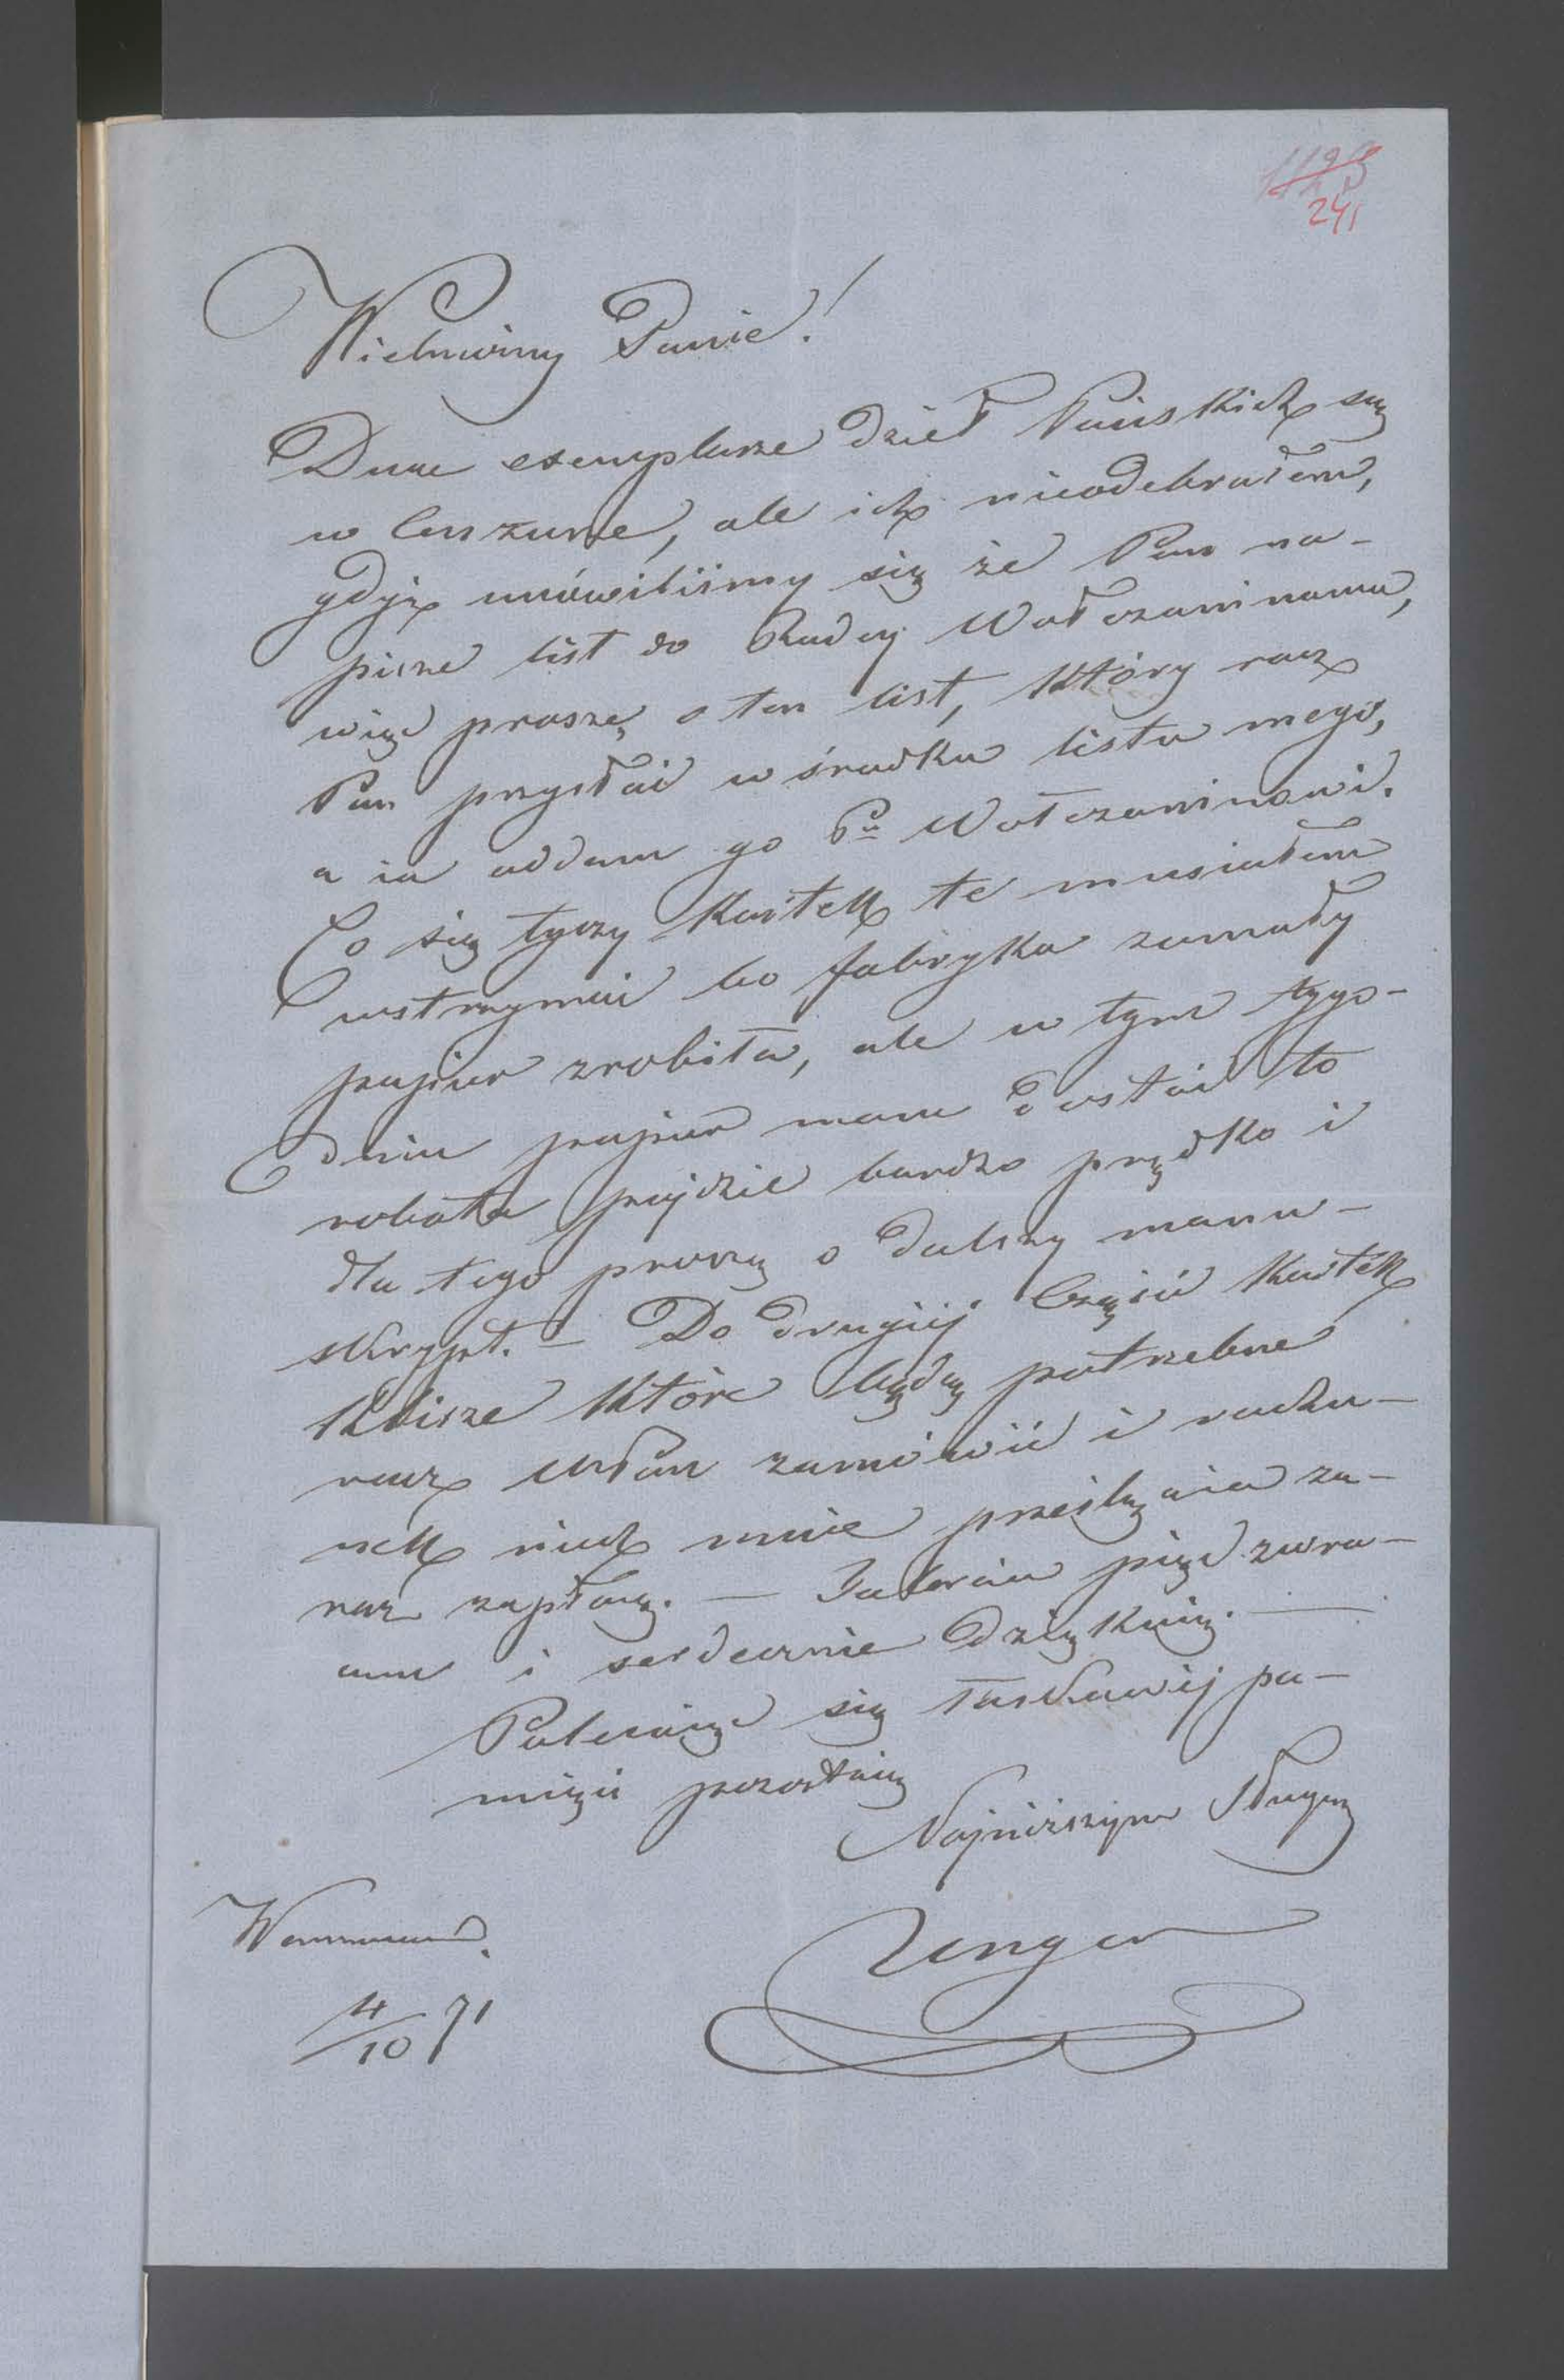 241
Wielmożny Panie!
Dwa exemplarze dzieł Pańskich są
w Cenzurze, ale ich nieodebrałem,
gdyż umówiliśmy się że Pan na-
pisze list do Radcy Wołczaninowa,
więc proszę o ten list, który racz
Pan przysłać w środku listu mego,
a ia oddam go Pu Wołczaninowi.
Co się tyczy Kartek te musiałem
wstrzymać bo fabryka zamały
papier zrobiła, ale w tym tygo-
dniu papier mam dostać to
robota pójdzie bardzo prędko i
dla tego proszę o dalszy manu-
skrypt. – Do drugiéj Części Kartek
Klisze które będą potrzebne
racz WPan zamówić i rachu-
nek niech mnie prześlą a ia za-
raz zapłacę. –
am i serdecznie dziękuię. –
Polecaiąc się łaskawéj pa-
mięci pozostaię
Najniższym Sługą
Unger
Warszawa
4/10 71